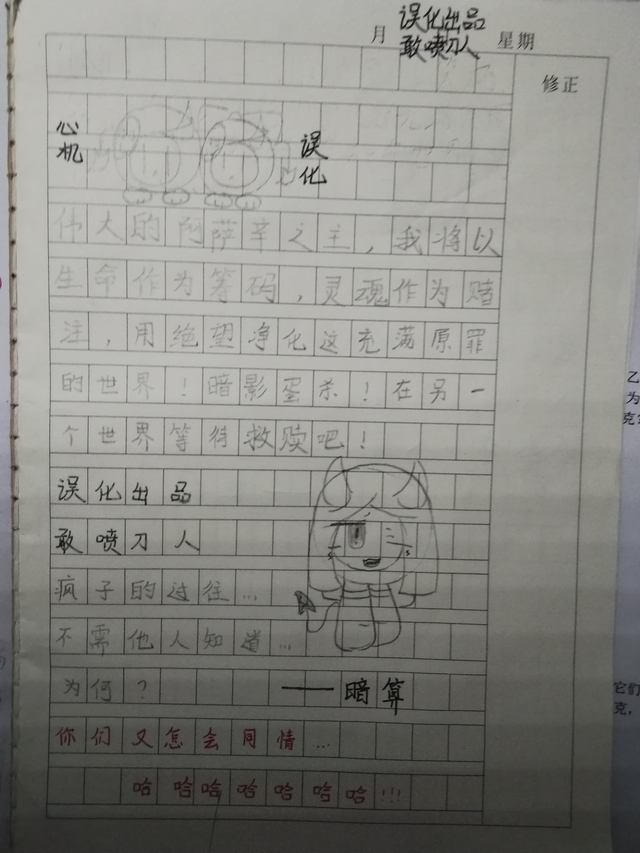 误化出品
月 敢喷刀人 星期
修正
心机
误化
伟大的阿萨辛之主，我将以
生命作为筹码，灵魂作为赌
注，用绝望净化这充满原罪
的世界！暗影蛋杀！在另一
个世界等待救赎吧！
误化出品
敢喷刀人
疯子的过往…
不需他人知道…
为何？ ——暗算
你们又怎会同情…
哈哈哈哈哈哈哈!!!
乙
为
克
它们
克，